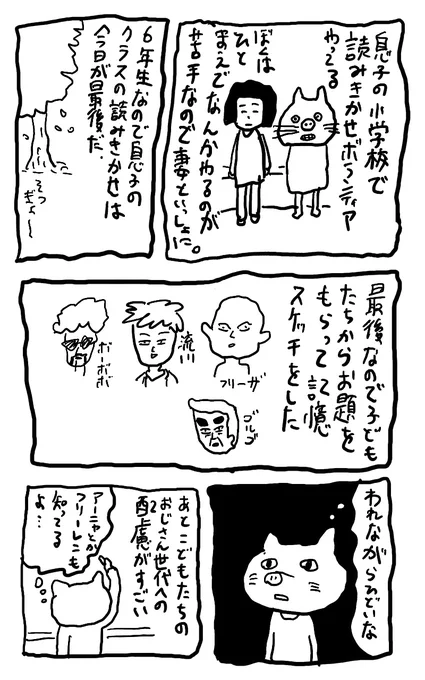 息子の小学校で
読みきかせボランティア
やってる
ぼくは
ひと
まえでなんかやるのが
苦手なので妻といっしょに。
6年生なので息子の
クラスの読みきかせは
今日が最後だ.
そつ
ぎょ〜
最後なので子ども
たちからお題を
もらって記憶
スケッチをした
フリーザ
流川
ボーボボ
ゴルゴ
われながらひどいな
あとこどもたちの
おじさん世代への
配慮がすごい
アーニャとか
フリーレンも
知ってる
よ…